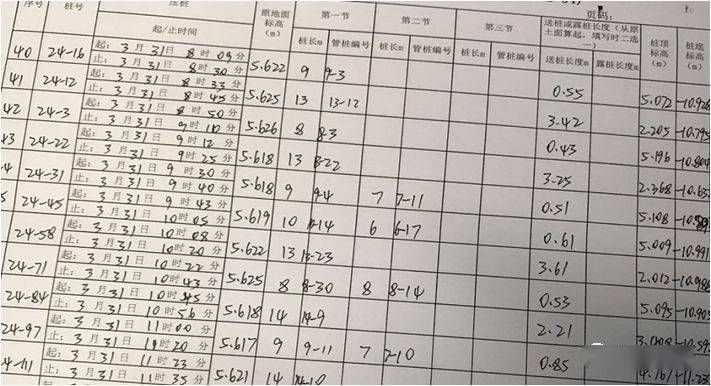 页码:
序号 桩号 压桩 原地面标高(m) 第一节 第二节 第三节 送桩或露桩长度(从原土面算起,填写时二选一) 桩顶标高(m) 桩底标高(m)
起/止时间 桩长m 管桩编号 桩长m 管桩编号 桩长m 管桩编号 送桩长度m 露桩长度m
40 24-16 起: 3月31日8时09分 5.622 9 9-3 0.55 5.072 -10.928
止: 3月31日8时30分
41 24-12 起: 3月31日8时33分 5.625 13 13-12 3.42 2.205 -10.795
止: 3月31日8时45分
42 24-3 起: 3月31日8时50分 5.626 8 8-3 0.43 5.196 -10.804
止: 3月31日9时10分
43 24-22 起: 3月31日9时12分 5.618 13 13-22 3.25 2.368 -10.632
止: 3月31日9时25分
4 24-31 起: 3月31日9时30分 5.618 9 9-4 7 7-11 0.51 5.108
止: 3月31日9时40分
5 24-45 起: 3月31日9时43分 5.619 10 10-14 6 6-17 0.61 5.009 -10.991
止: 3月31日10时05分
24-58 起: 3月31日10时08分 5.622 13 13-23 3.61 2.012 -10.988
止: 3月31日10时20分
24-71 起: 3月31日10时22分 5.625 8 8-30 8 8-14 0.53 5.095 -10.905
止: 3月31日10时43分
24-84 起: 3月31日10时45分 5.618 14 14-9 2.21
止: 3月31日10时56分
24-97 起: 3月31日11时00分 5.617 9 9-11 7 7-10 0.85
止: 3月31日11时20分
4-111 起: 3月31日11时23分 5.621 14 14-10
止: 3月31日11时35分